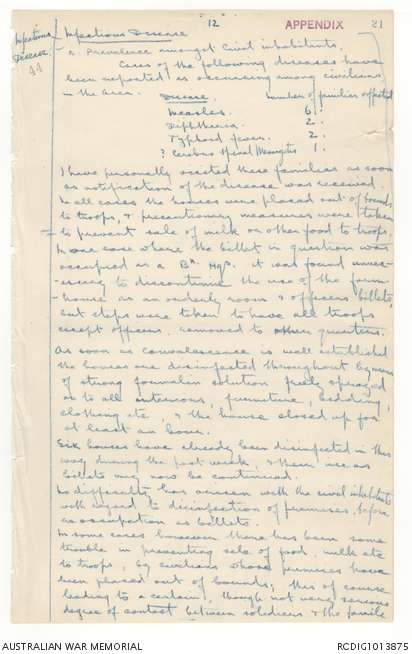 12 APPENDIX 21
Infectious Disease
44
Infectious Disease
a. Prevalence amongst Civil inhabitants.
Cases of the following diseases have
been reported as occurring among civilians
in the area.
Disease. Number of families affected
Measles. 6.
Diphtheria. 2.
Typhoid fever. 2.
? Cerebro Spinal Meningitis 1.
I have personally visited these families as soon
as notification of the disease was received.
In all cases the houses were placed out of bounds
to troops, & precautionary measures were taken
to prevent sale of milk or other food to troops.
In one case where the billet in question was
occupied as a Bn. Hqs. it was found unnec-
-essary to discontinue the use of the farm-
-house as an orderly room & officers billets,
but steps were taken to have all troops
except officers removed to other quarters.
As soon as convalescence is well established
the houses are disinfected throughout by means
of strong formalin solution freely sprayed
on to all interiors, furniture, bedding,
clothing etc. & the house closed up for
at least an hour.
Six houses have already been disinfected in this
way during the past week, & their use as
billets may now be continued.
No difficulty has arisen with the civil inhabitants
with regard to disinfection of premises before
re occupation as billets.
In some cases however there has been some
trouble in preventing sale of food, milk etc
to troops, by civilians whose premises have
been placed out of bounds; this of course
leading to a certain, though not very serious
degree of contact between soldiers & the family
AUSTRALIAN WAR MEMORIAL RCDIG1013875